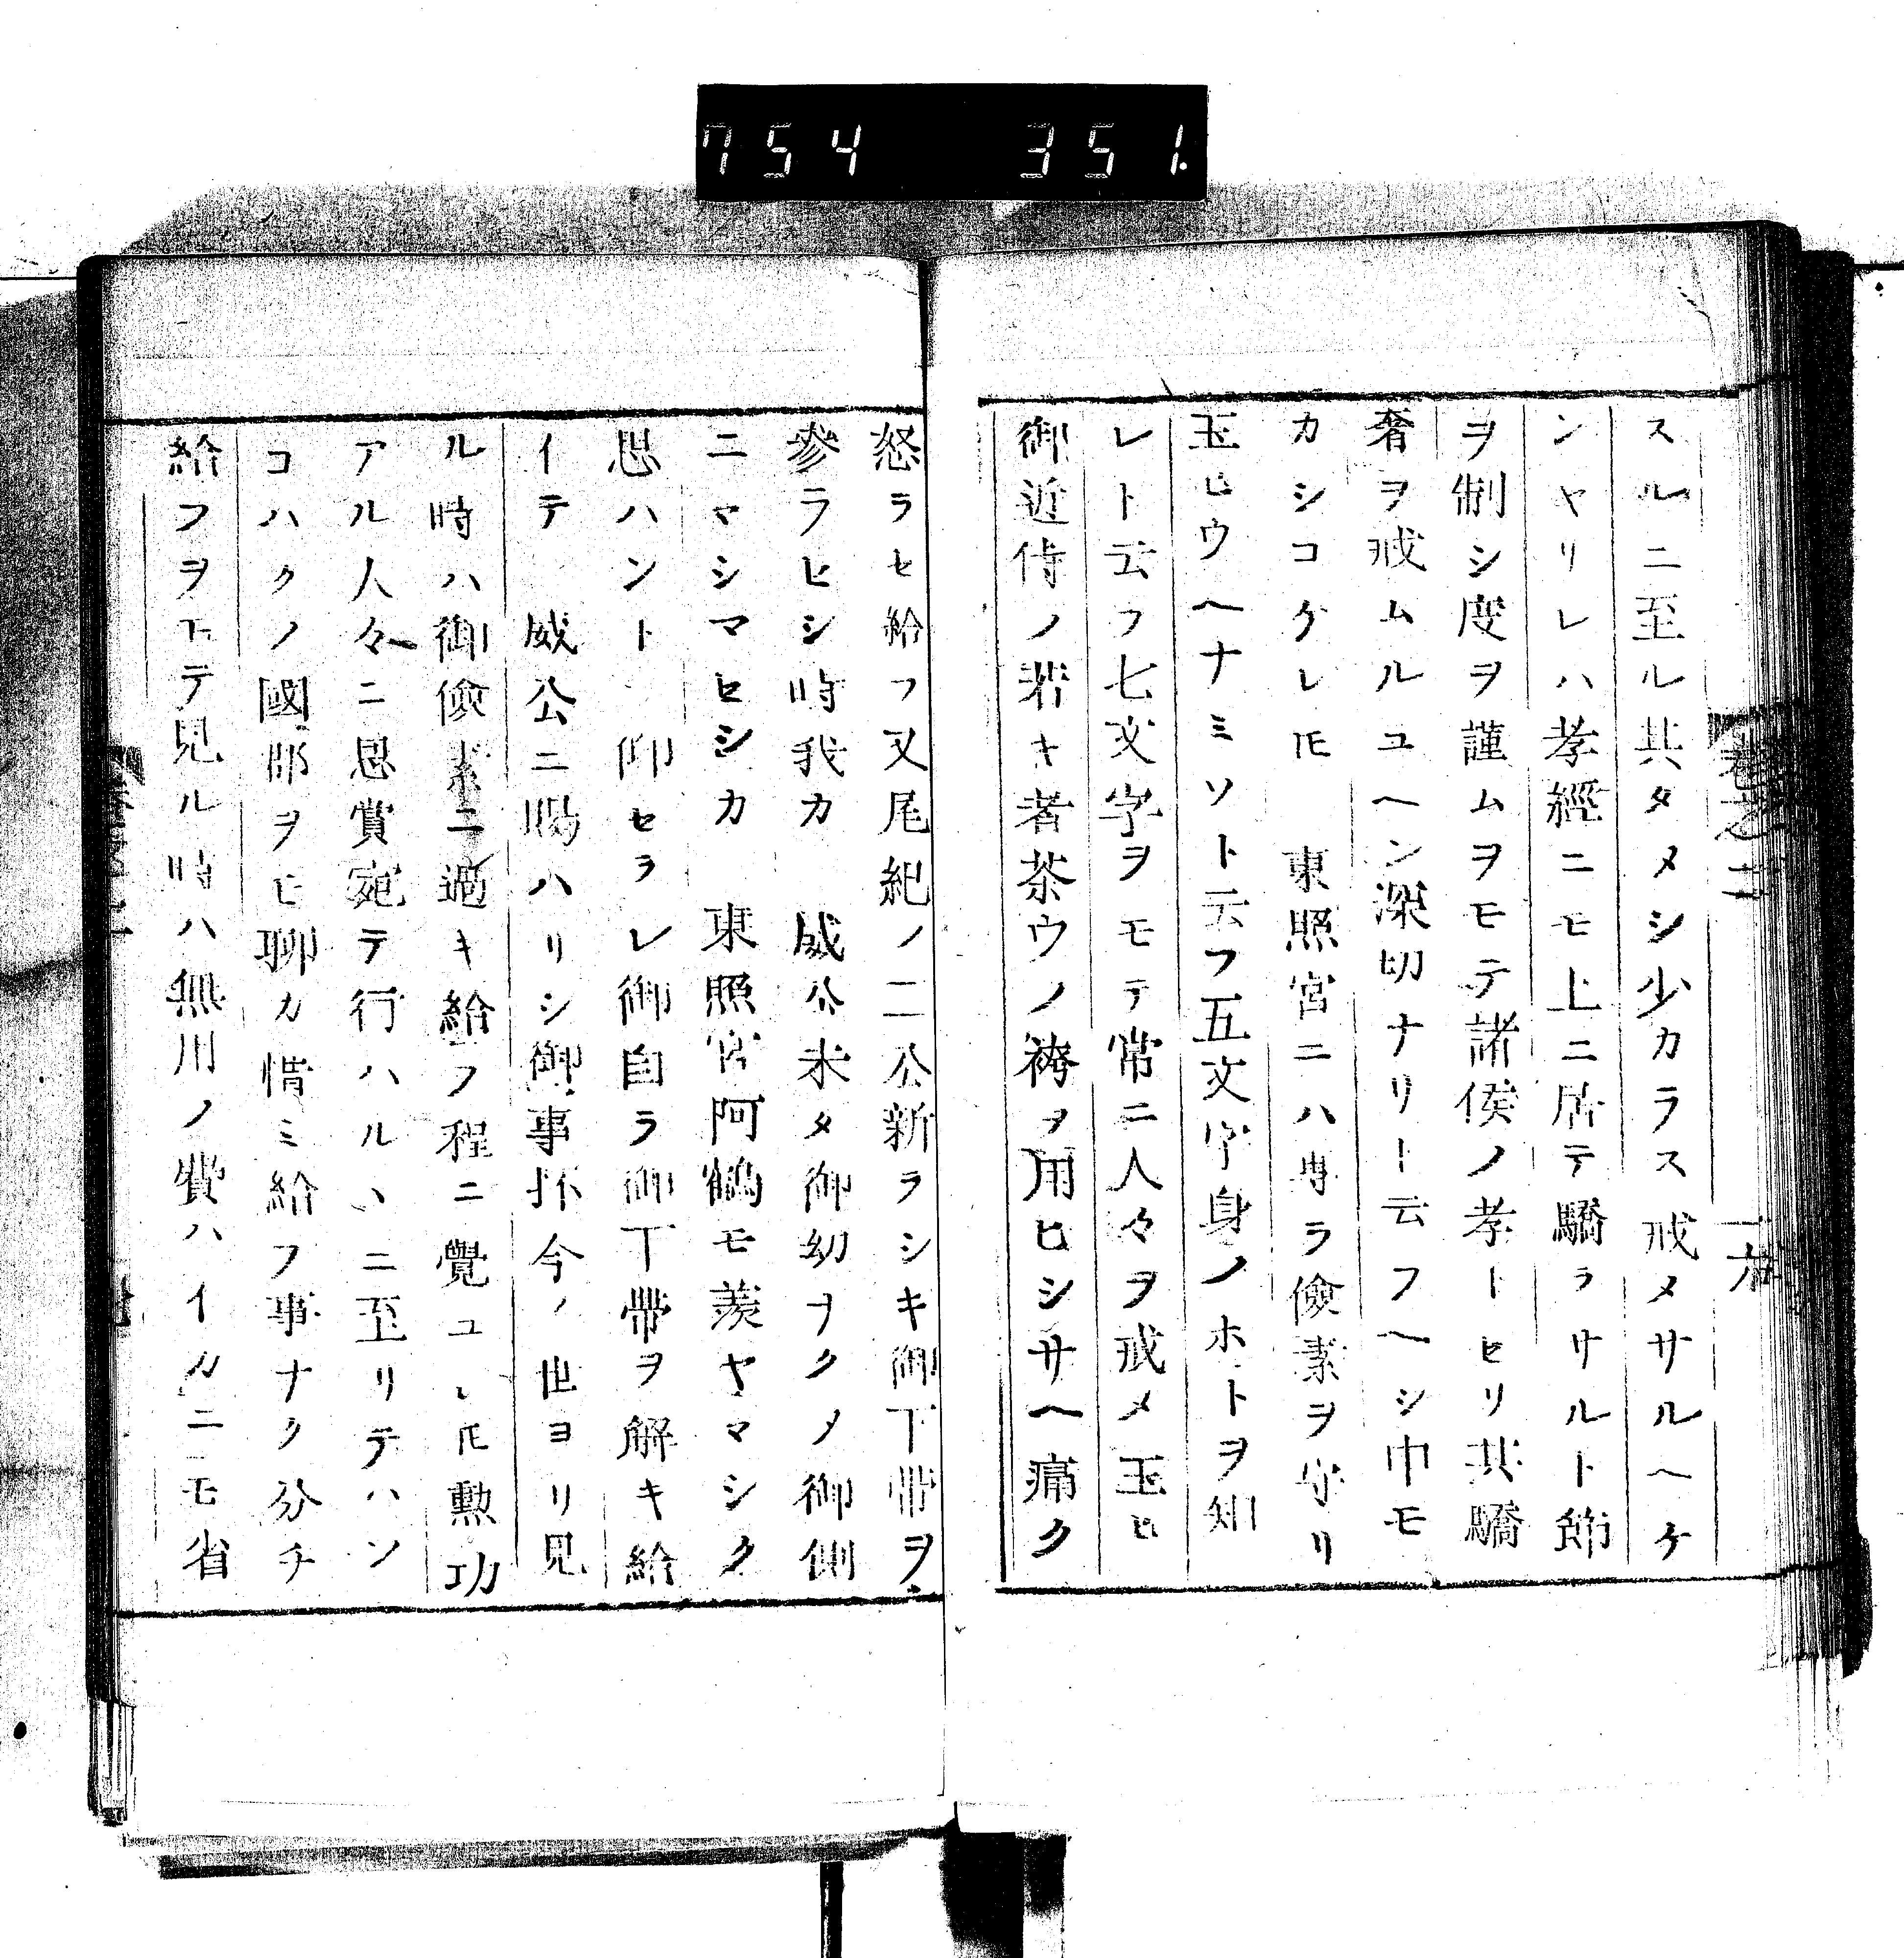 754 351
巻之二
スルニ至ル其タメシ少カラス戒メサルヘケ
ンヤリレハ孝經ニモ上ニ居テ驕ラサルト節
ヲ制シ度ヲ謹ムヲモテ諸侯ノ孝トセリ其驕
奢ヲ戒ムルユヘン深切ナリト云フヘシ中モ
カシコケレ𪜈　東照宮ニハ專ラ儉素ヲ守リ
玉ヒウヘナミソト云フ五文字身ノホトヲ知
レト云フ七文字ヲモテ常ニ人々ヲ戒メ玉ヒ
御近侍ノ若キ者茶ウノ袴ヲ用ヒシサヘ痛ク
怒ラセ給フ又尾紀ノ二公新ラシキ御下帶ヲ
參ラヒシ時我カ　威公未タ御幼ヲクノ御側
ニマシマセシカ　東照宮阿鶴モ羨ヤマシク
思ハント　仰セラレ御自ラ御下帶ヲ解キ給
イテ　威公ニ賜ハリシ御事抔今ノ世ヨリ見
ル時ハ御儉素ニ過キ給フ程ニ覺ユレ𪜈勲功
アル人々ニ恩賞宛テ行ハルヽニ至リテハソ
コハクノ國郡ヲモ聊カ惜ミ給フ事ナク分チ
給フヲ以テ見ル時ハ無用ノ費ハイカニモ省